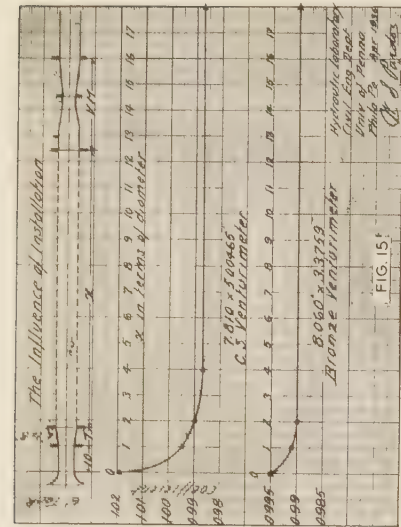 The Influence of Installation
x
V.M.
0 1 2 3 4 5 6 7 8 9 10 11 12 13 14 15 16 17
x in terms of diameter
1.02
1.01
1.00
0.99
0.98
coefficient
7.810 × 5.00465
C.S. Venturimeter
0 1 2 3 4 5 6 7 8 9 10 11 12 13 14 15 16 17
0.995
0.99
0.985
8.060" × 3.3759
Bronze Venturimeter
Hydraulic Laboratory
Civil Eng Dept
Univ of Penna
Phila Pa Apr 1936
W S Pardoe
FIG. 15